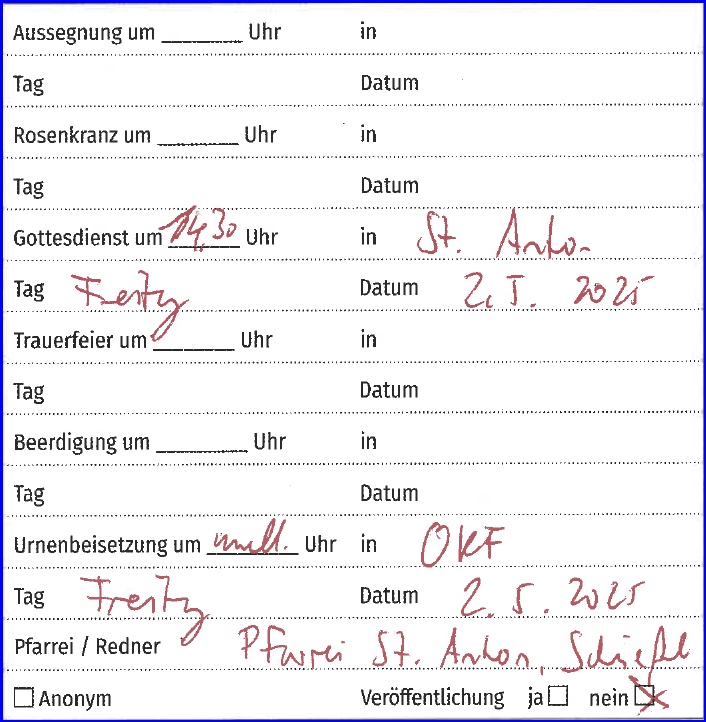 Aussegnung um ________ Uhr in
Tag Datum
Rosenkranz um ________ Uhr in
Tag Datum
Gottesdienst um 14,30 Uhr in St. Anton
Tag Freitag Datum 2. 5. 2025
Trauerfeier um ________ Uhr in
Tag Datum
Beerdigung um ________ Uhr in
Tag Datum
Urnenbeisetzung um Uhr in OKF
Tag Freitag Datum 2. 5. 2025
Pfarrei / Redner Pfarrei St. Anton,
☐ Anonym Veröffentlichung ja ☐ nein ☒